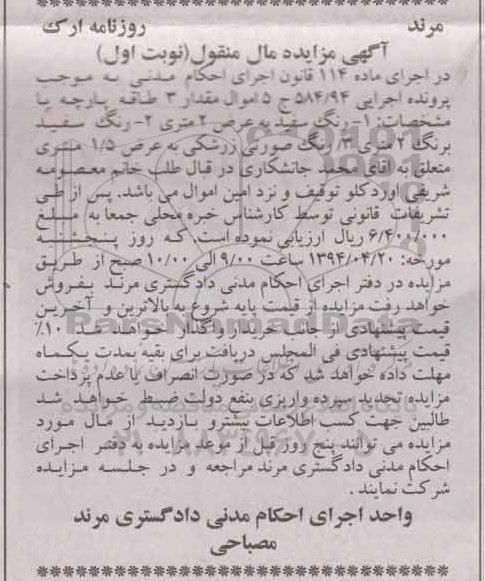 مرند روزنامه ارک
آگهی مزایده مال منقول(نوبت اول)
در اجرای ماده ۱۱۴ قانون اجرای احکام مدنی به موجب
پرونده اجرایی ۵۸۴/۹۴ ج ۵ اموال مقدار ۳ طاقه پارچه با
مشخصات: ۱- رنگ سفید به عرض ۲ متری ۲- رنگ سفید
برنگ ۲ متری ۳/ رنگ صورتی زرشکی به عرض ۱/۵ متری
متعلق به آقای محمد جانشکاری در قبال طلب خانم معصومه
شریفی اوردکلو توقیف و نزد امین اموال می باشد. پس از طی
تشریفات قانونی توسط کارشناس خبره محلی جمعا به مبلغ
۶/۴۰۰/۰۰۰ ریال ارزیابی نموده است. که روز پنجشنبه
مورخه: ۱۳۹۴/۰۴/۲۰ ساعت ۹/۰۰ الی ۱۰/۰۰ صبح از طریق
مزایده در دفتر اجرای احکام مدنی دادگستری مرند بفروش
خواهد رفت مزایده از قیمت پایه شروع به بالاترین و آخرین
قیمت پیشنهادی از جانب خریدار واگذار خواهد شد ۱۰٪
قیمت پیشنهادی فی المجلس دریافت برای بقیه بمدت یکماه
مهلت داده خواهد شد که در صورت انصراف یا عدم پرداخت
مزایده تجدید سپرده واریزی بنفع دولت ضبط خواهد شد
طالبین جهت کسب اطلاعات بیشتر و بازدید از مال مورد
مزایده می توانند پنج روز قبل از موعد مزایده به دفتر اجرای
احکام مدنی دادگستری مرند مراجعه و در جلسه مزایده
شرکت نمایند .
واحد اجرای احکام مدنی دادگستری مرند
مصباحی